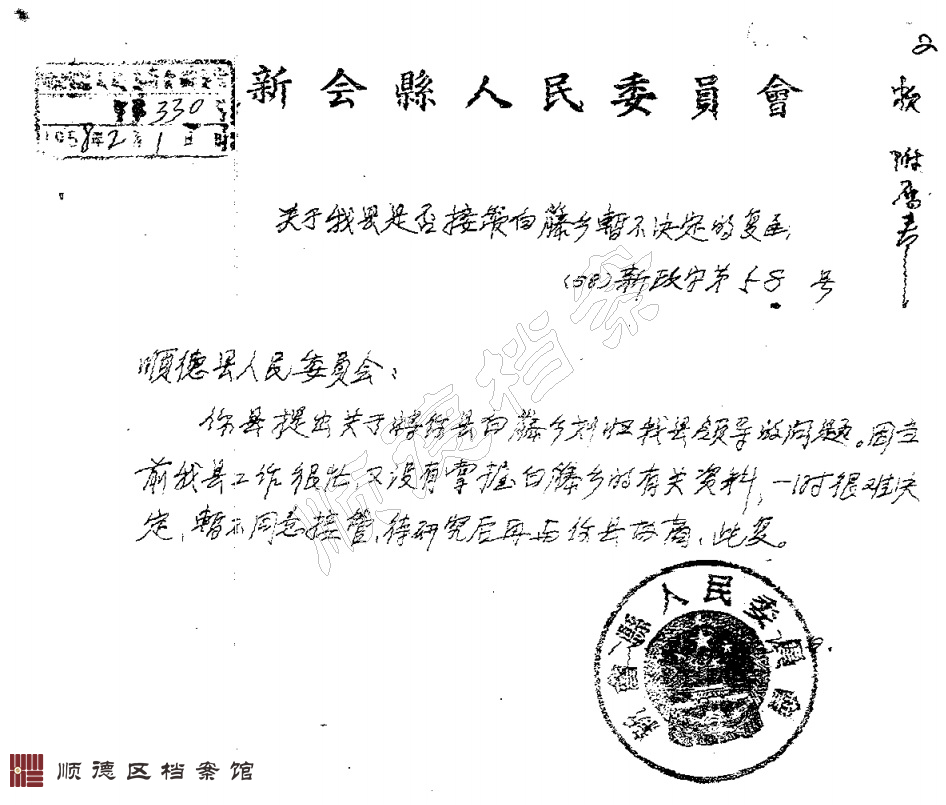 新会縣人民委員會
330
1958年2月1日
2
关于我县是否接管白藤乡暂不决定的复函
(58)新政字第58号
顺德县人民委员会：
你县提出关于将你县白藤乡划归我县领导的问题。因立
前我县工作很忙，又没有掌握白藤乡的有关资料，一时很难决
定，暂不同意接管，待研究后再与你县协商，此复。
新會縣人民委員會
顺德档案
顺德区档案馆